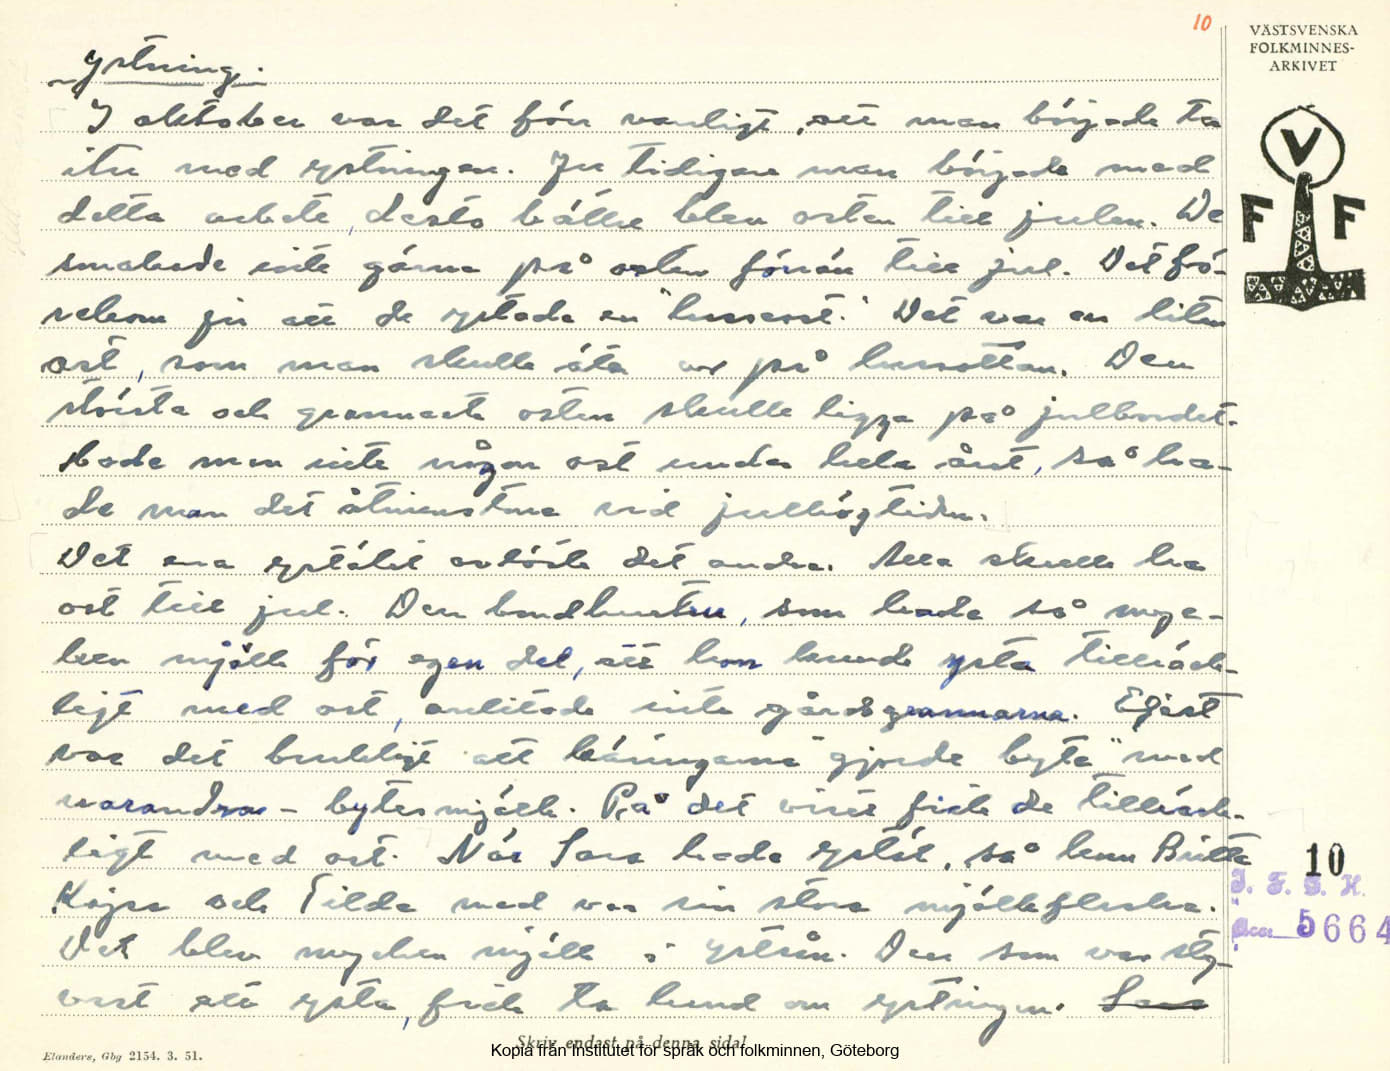 10
VÄSTSVENSKA
FOLKMINNES-
ARKIVET
V
F F
Ystning.
I oktober var det förr vanligt, att man började ta
itu med ystningen. Ju tidigare man började med
detta arbete, desto bättre blev osten till julen. De
smakade inte gärna på osten förrän till jul. Det fö-
rekom ju att de ystade en "lusseost." Det var en liten
ost, som man skulle äta av på lussottan. Den
största och grannaste osten skulle ligga på julbordet.
Hade man inte någon ost under hela året, så ha-
de man det åtminstone vid julhögtiden.
Det ena ystälet avlöste det andra. Alla skulle ha
ost till jul. Den bondhustru, som hade så myc-
ken mjölk för egen del, att hon kunde ysta tillräck-
ligt med ost, anlitade inte gårdsgrannarna. Eljest
var det brukligt att käringarna "gjorde byta" med
varandra - bytesmjölk. På det viset fick de tillräck-
ligt med ost. När Sara hade ystat, så kom Britta
Kajsa och Tilda med var sin stora mjölkflaska.
Det blev mycken mjölk i ystsån. Den som var sty-
vast att ysta, fick ta hand om ystningen. Sara
10
I. F. G. H.
Acc 5664
Skriv endast på denna sida!
Elanders, Gbg 2154. 3. 51.
Kopia från Institutet för språk och folkminnen, Göteborg